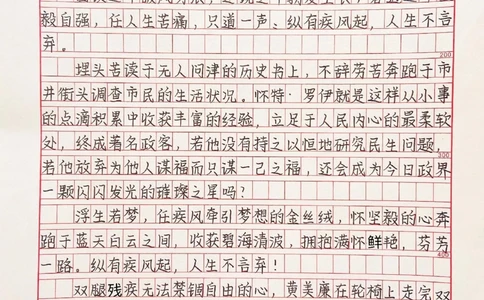 毅自强，任人生苦痛，只道一声、纵有疾风起，人生不言
弃。
200
埋头苦读于无人问津的历史书上，不辞劳苦奔跑于市
井街头调查市民的生活状况。怀特·罗伊就是这样从小事
的点滴积累中收获丰富的经验，立足于人民内心的最柔软
处，终成著名政客，若他没有持之以恒地研究民生问题，
300
若他放弃为他人谋福而只谋一己之福，还会成为今日政界
一颗闪闪发光的璀璨之星吗？
浮生若梦，任疾风牵引梦想的金丝绒，怀坚毅的心奔
跑于蓝天白云之间，收获碧海清波，拥抱满怀鲜艳，芬芳
400
一路。纵有疾风起，人生不言弃！
双腿残疾无法禁锢自由的心，黄美廉在轮椅上走完双